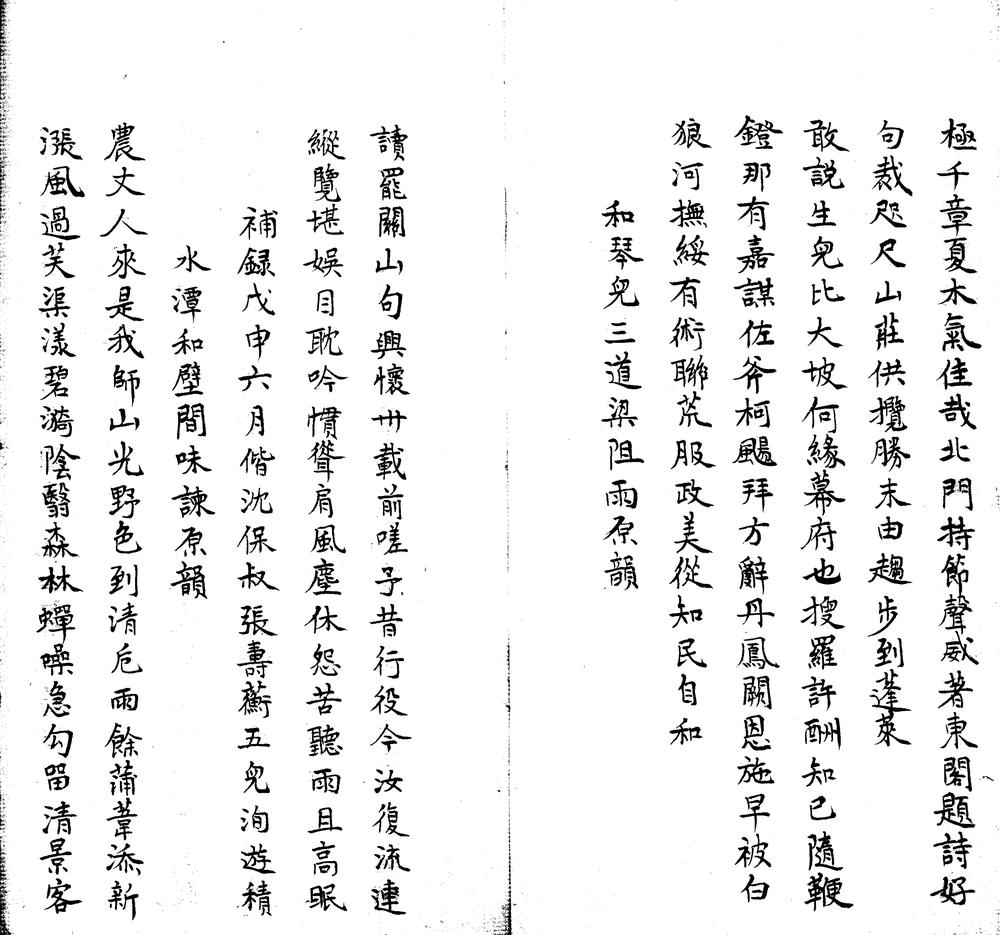 極千章夏木氣佳哉北門持節聲威著東閣題詩好
句裁咫尺山莊供攬勝末由趨步到蓬萊
敢説生兒比大坡何緣幕府也搜羅許酬知已隨鞭
鐙那有嘉謀佐斧柯颺拜方辭丹鳳闕恩施早被白
狼河撫綏有術聯荒服政美從知民自和
和琴兒三道梁阻雨原韻
讀罷關山句興懷卅載前嗟予昔行役今汝復流連
縱覽堪娛目耽吟慣聳肩風塵休怨苦聽雨且高眠
補録戊申六月偕沈保叔張壽蘅五兒洵遊積
水潭和壁間味諫原韻
農丈人來是我師山光野色到清巵雨餘蒲葦添新
漲風過芙渠漾碧漪陰翳森林蟬噪急勾留清景客